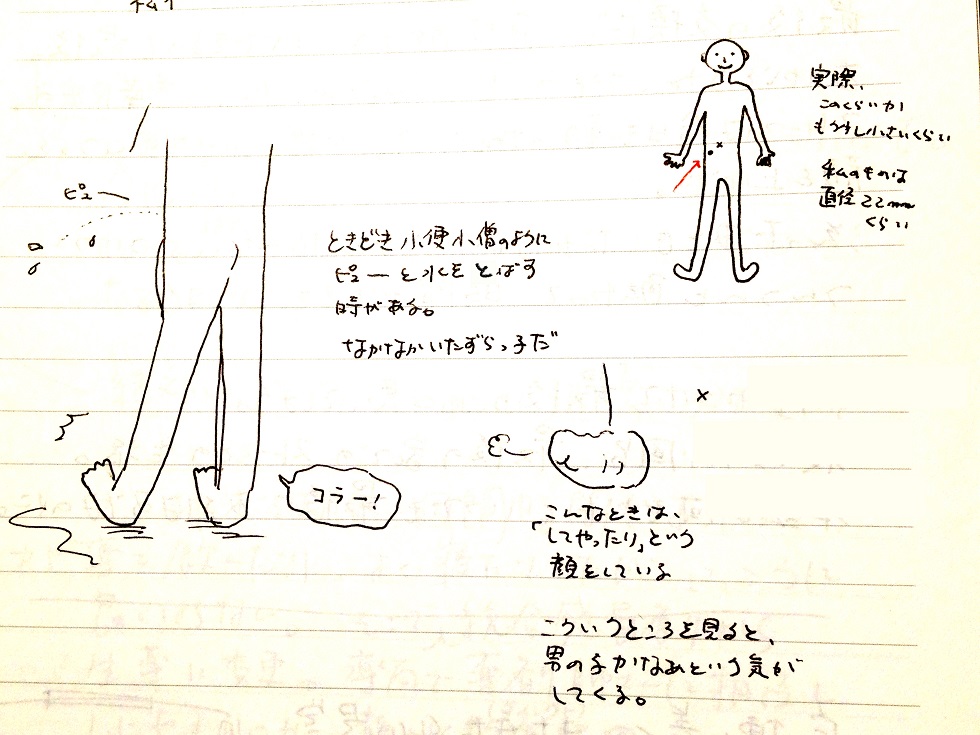 ピュー
ときどき小便小僧のように
ピューと水をとばす
時がある。
なかなかいたずらっ子だ
コラー!
実際、
このくらいか
もう少し小さいくらい
私のものは
直径22mm
くらい
こんなときは、
「してやったり」という
顔をしている
こういうところを見ると、
男の子かなあという気が
してくる。